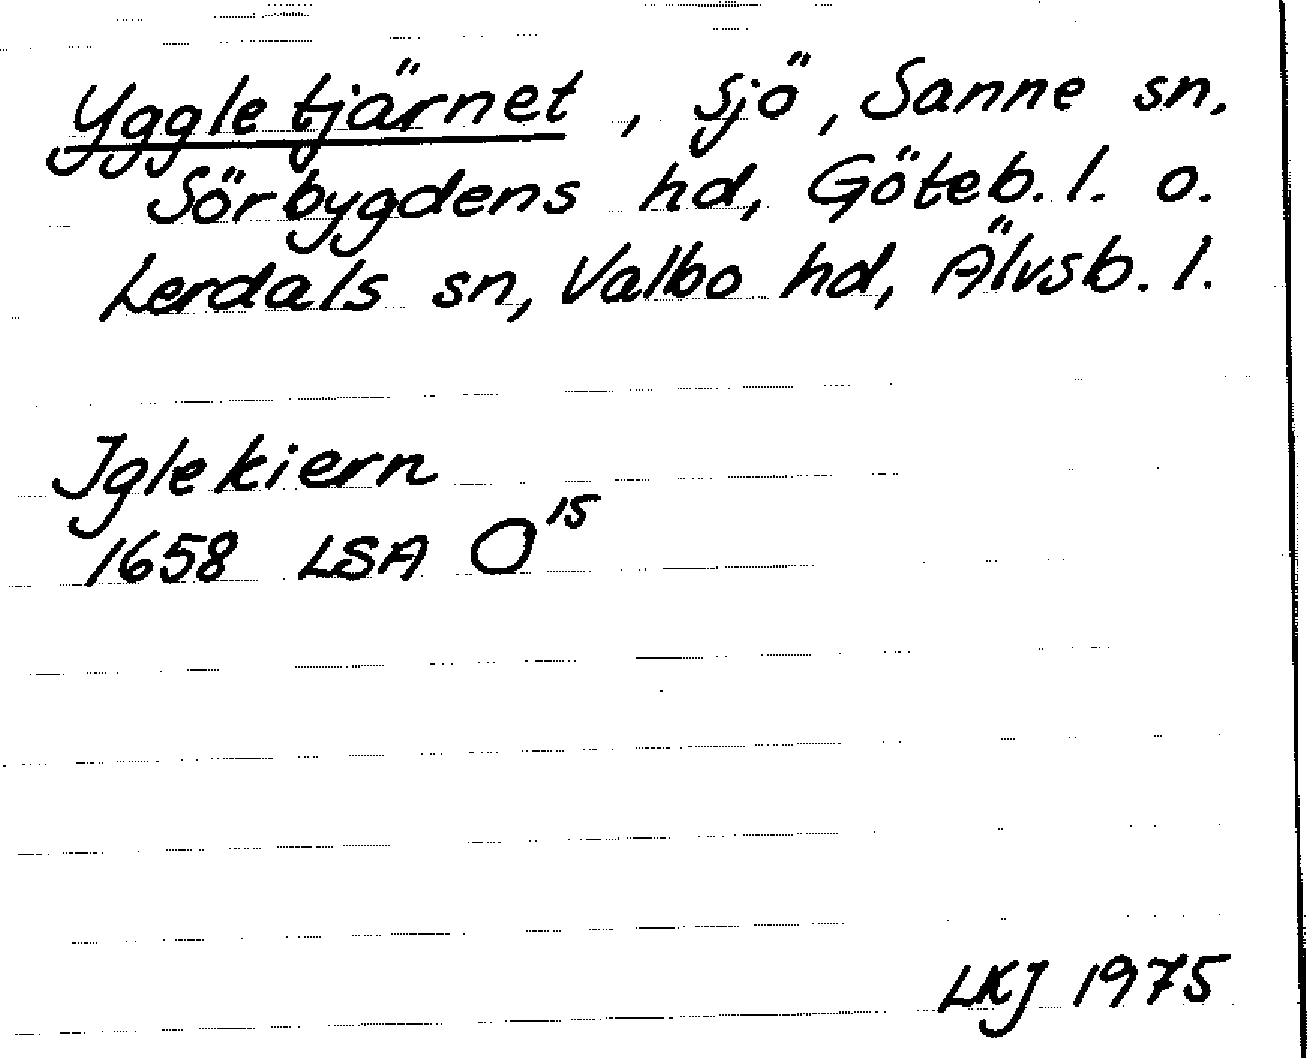 Yggletjärnet, sjö, Sanne sn,
Sörbygdens hd, Göteb. l. o.
Lerdals sn, Valbo hd, Älvsb. l.
Iglekiern
1658 LSA O15
LKJ 1975